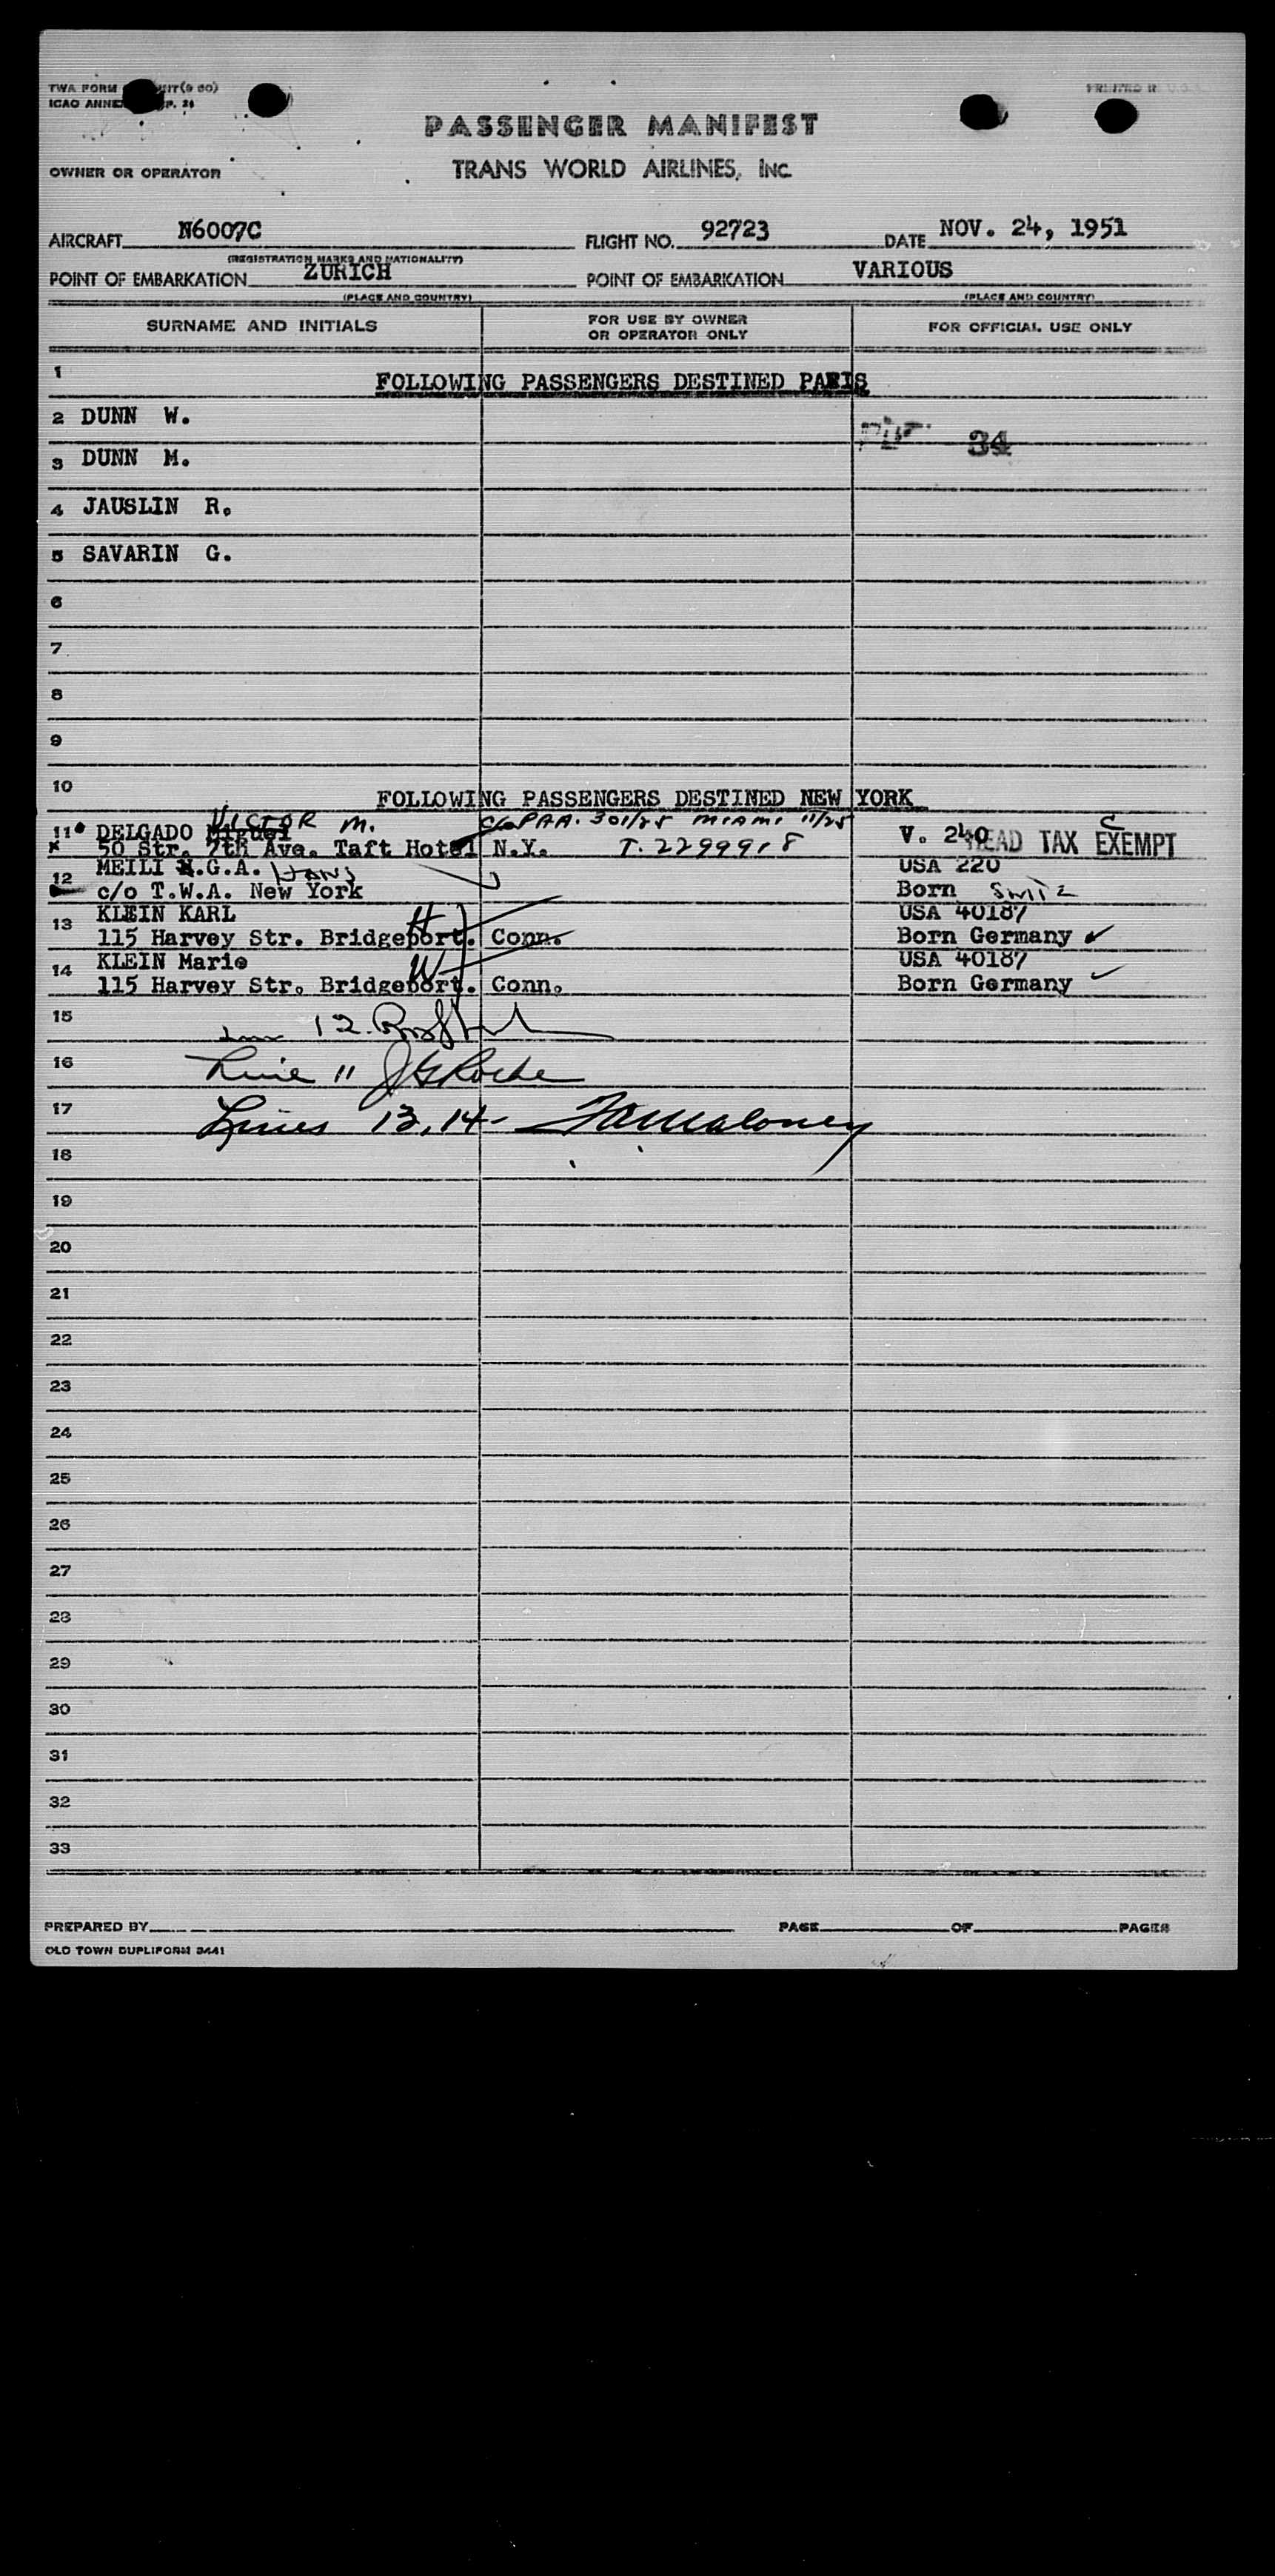 TWA FORM
ICAO ANNEX
PRINTED IN U.S.A.
PASSENGER MANIFEST
OWNER OR OPERATOR TRANS WORLD AIRLINES, Inc.
AIRCRAFT N6007C FLIGHT NO. 92723 DATE NOV. 24, 1951
(REGISTRATION MARKS AND NATIONALITY)
POINT OF EMBARKATION ZURICH POINT OF EMBARKATION VARIOUS
(PLACE AND COUNTRY) (PLACE AND COUNTRY)
SURNAME AND INITIALS FOR USE BY OWNER OR OPERATOR ONLY FOR OFFICIAL USE ONLY
1 FOLLOWING PASSENGERS DESTINED PARIS
2 DUNN W.
34
3 DUNN M.
4 JAUSLIN R.
5 SAVARIN G.
6
7
8
9
10 FOLLOWING PASSENGERS DESTINED NEW YORK
VICTOR M. PAA. 301/25 MIAMI 11/25 C
11 DELGADO Miguel V. 240 HEAD TAX EXEMPT
x 50 Str. 7th Ave. Taft Hotel N.Y. T. 2299918
12 MEILI H.G.A. HANS USA 220
c/o T.W.A. New York Born Switz
13 KLEIN KARL H USA 40187
115 Harvey Str. Bridgeport. Conn. Born Germany ✓
14 KLEIN Marie W USA 40187
115 Harvey Str. Bridgeport. Conn. Born Germany ✓
15 12
16 Line 11 JG Roche
17 Lines 13, 14 - Maloney
18
19
20
21
22
23
24
25
26
27
28
29
30
31
32
33
PREPARED BY PAGE OF PAGES
OLD TOWN DUPLIFORM 3441